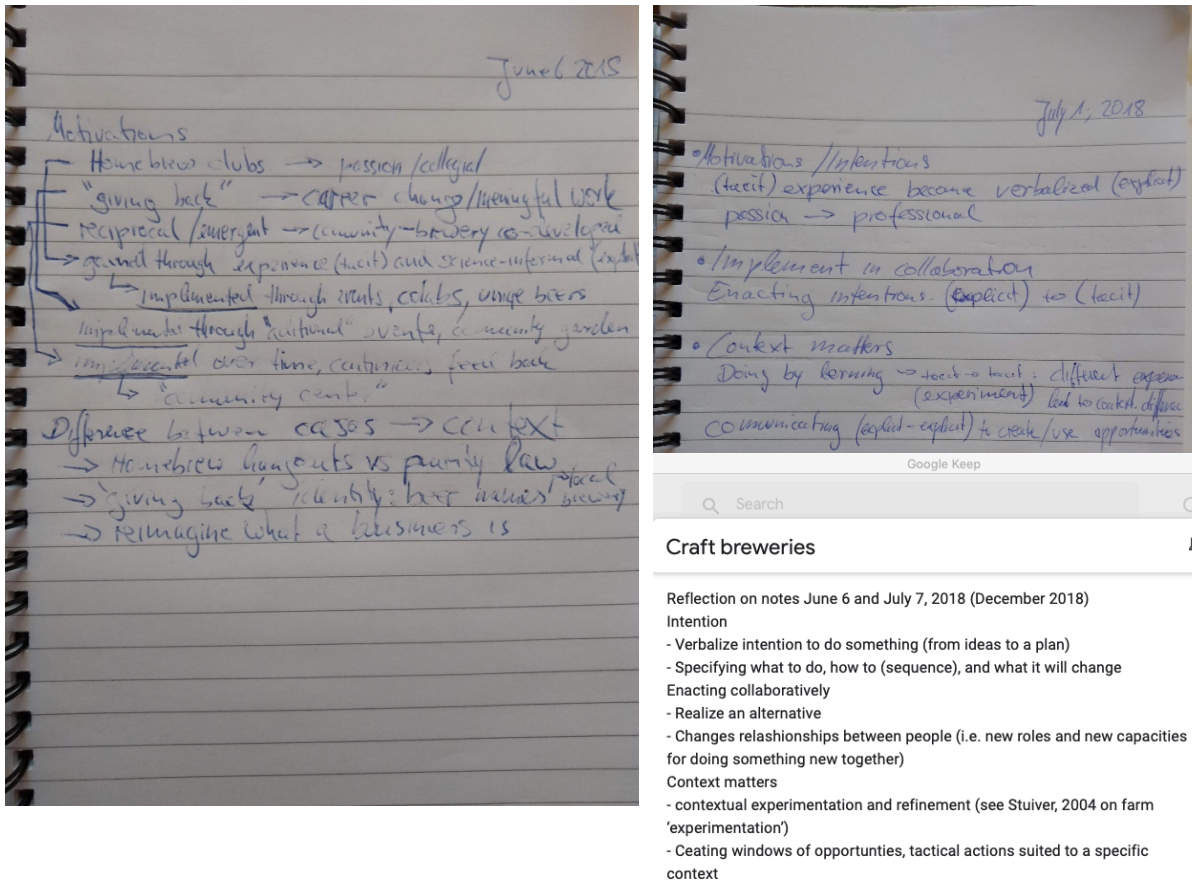 June 6 2018
Motivations
Homebrew clubs → passion/collegial
"giving back" → career change/meaningful work
reciprocal/emergent → community-brewery co-developed
gained through experience (tacit) and science-informed (explicit
↳ implemented through events, colabs, unique beers
implemented through "additional" events, community garden
implemented over time, continuous feed back
↳ "community center"
Difference between cases → context
→ Homebrew hangouts vs purity law
→ 'giving back' identity: beer names local brewery
→ reimagine what a business is
July 1, 2018
• Motivations/Intentions
(tacit) experience become verbalized (explicit)
passion → professional
• Implement in collaboration
Enacting intentions. (explicit) to (tacit)
• Context matters
Doing by lerning → tacit → tacit: different experien
(experiment) lead to context. differenc
Communicating (explicit-explicit) to create/use opportunities
Google Keep
Search
Craft breweries
Reflection on notes June 6 and July 7, 2018 (December 2018)
Intention
- Verbalize intention to do something (from ideas to a plan)
- Specifying what to do, how to (sequence), and what it will change
Enacting collaboratively
- Realize an alternative
- Changes relashionships between people (i.e. new roles and new capacities
for doing something new together)
Context matters
- contextual experimentation and refinement (see Stuiver, 2004 on farm
'experimentation')
- Ceating windows of opportunties, tactical actions suited to a specific
context